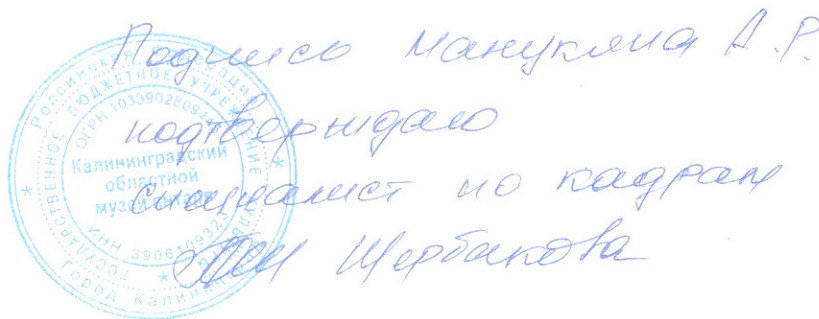 Подпись Манукяна А.Р.
подтверждаю
специалист по кадрам
Щербакова
Российская Федерация
ГОСУДАРСТВЕННОЕ БЮДЖЕТНОЕ УЧРЕЖДЕНИЕ КУЛЬТУРЫ
ОГРН
Калининградский
областной
музей
ИНН
Город Калининград